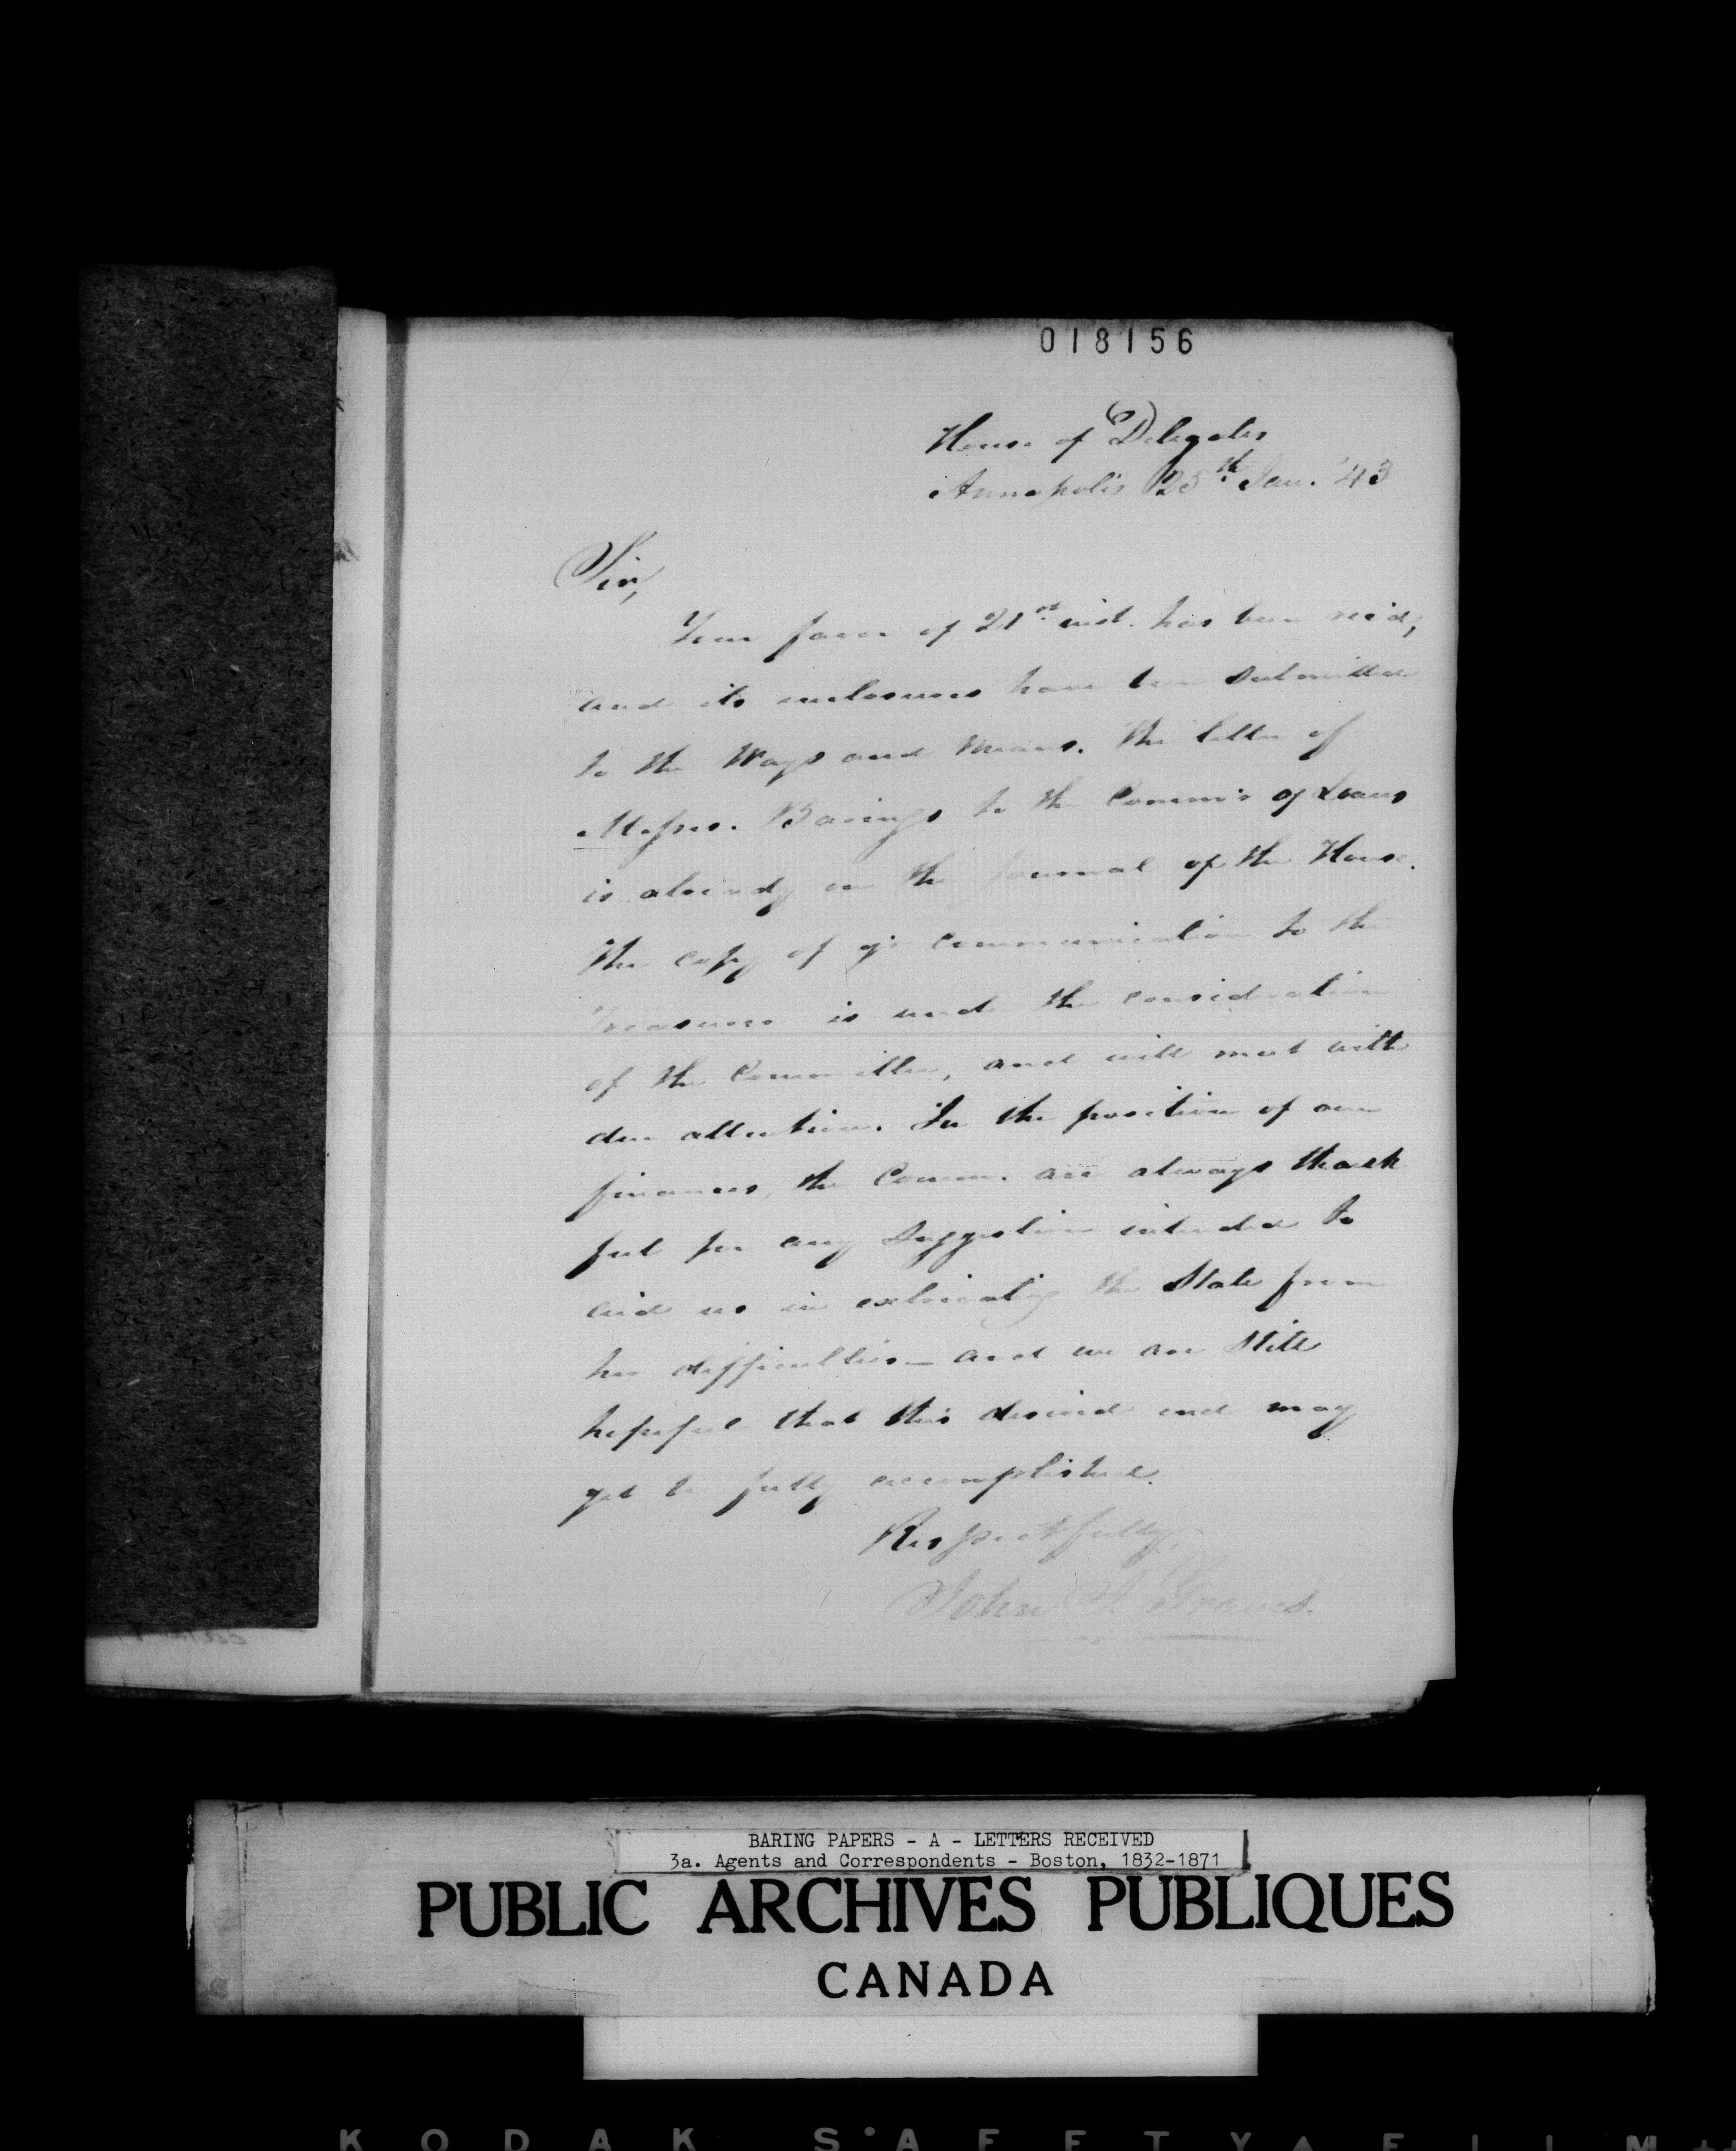 018156
House of Delegates
Annapolis 25th Jan. '43
Sir,
Your favor of 21st inst. has been rec'd,
and its enclosures have been submitted
to the Ways and Means. The letter of
Messrs. Barings to the Comm'r of Loans
is already on the Journal of the House.
The copy of yr communication to the
Treasurer is under the consideration
of the Committee, and will meet with
due attention. In the position of our
finances, the Comm. are always thank
ful for any suggestion intended to
aid us in extricating the State from
her difficulties — and we are still
hopeful that this desired end may
yet be fully accomplished.
Respectfully,
John J. Graves.
BARING PAPERS - A - LETTERS RECEIVED
3a. Agents and Correspondents - Boston, 1832-1871
PUBLIC ARCHIVES PUBLIQUES
CANADA
KODAK SAFETY FILM